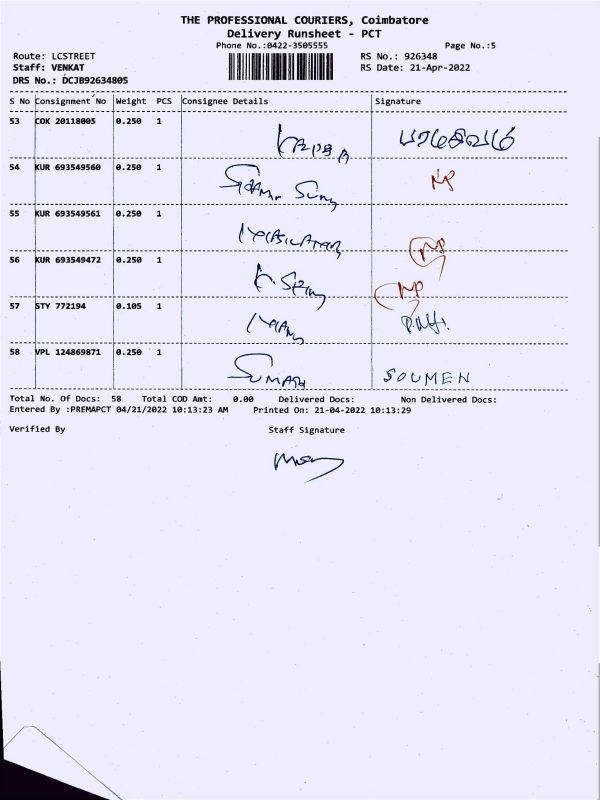 THE PROFESSIONAL COURIERS, Coimbatore
Delivery Runsheet - PCT
Phone No.:0422-3505555 Page No.:5
Route: LCSTREET RS No.: 926348
Staff: VENKAT RS Date: 21-Apr-2022
DRS No.: DCJB92634805
S No Consignment No Weight PCS Consignee Details Signature
53 COK 20118005 0.250 1
54 KUR 693549560 0.250 1
NP
55 KUR 693549561 0.250 1
NP
56 KUR 693549472 0.250 1
NP
57 STY 772194 0.105 1
58 VPL 124869871 0.250 1
SUMAN SOUMEN
Total No. Of Docs: 58 Total COD Amt: 0.00 Delivered Docs: Non Delivered Docs:
Entered By :PREMAPCT 04/21/2022 10:13:23 AM Printed On: 21-04-2022 10:13:29
Verified By Staff Signature